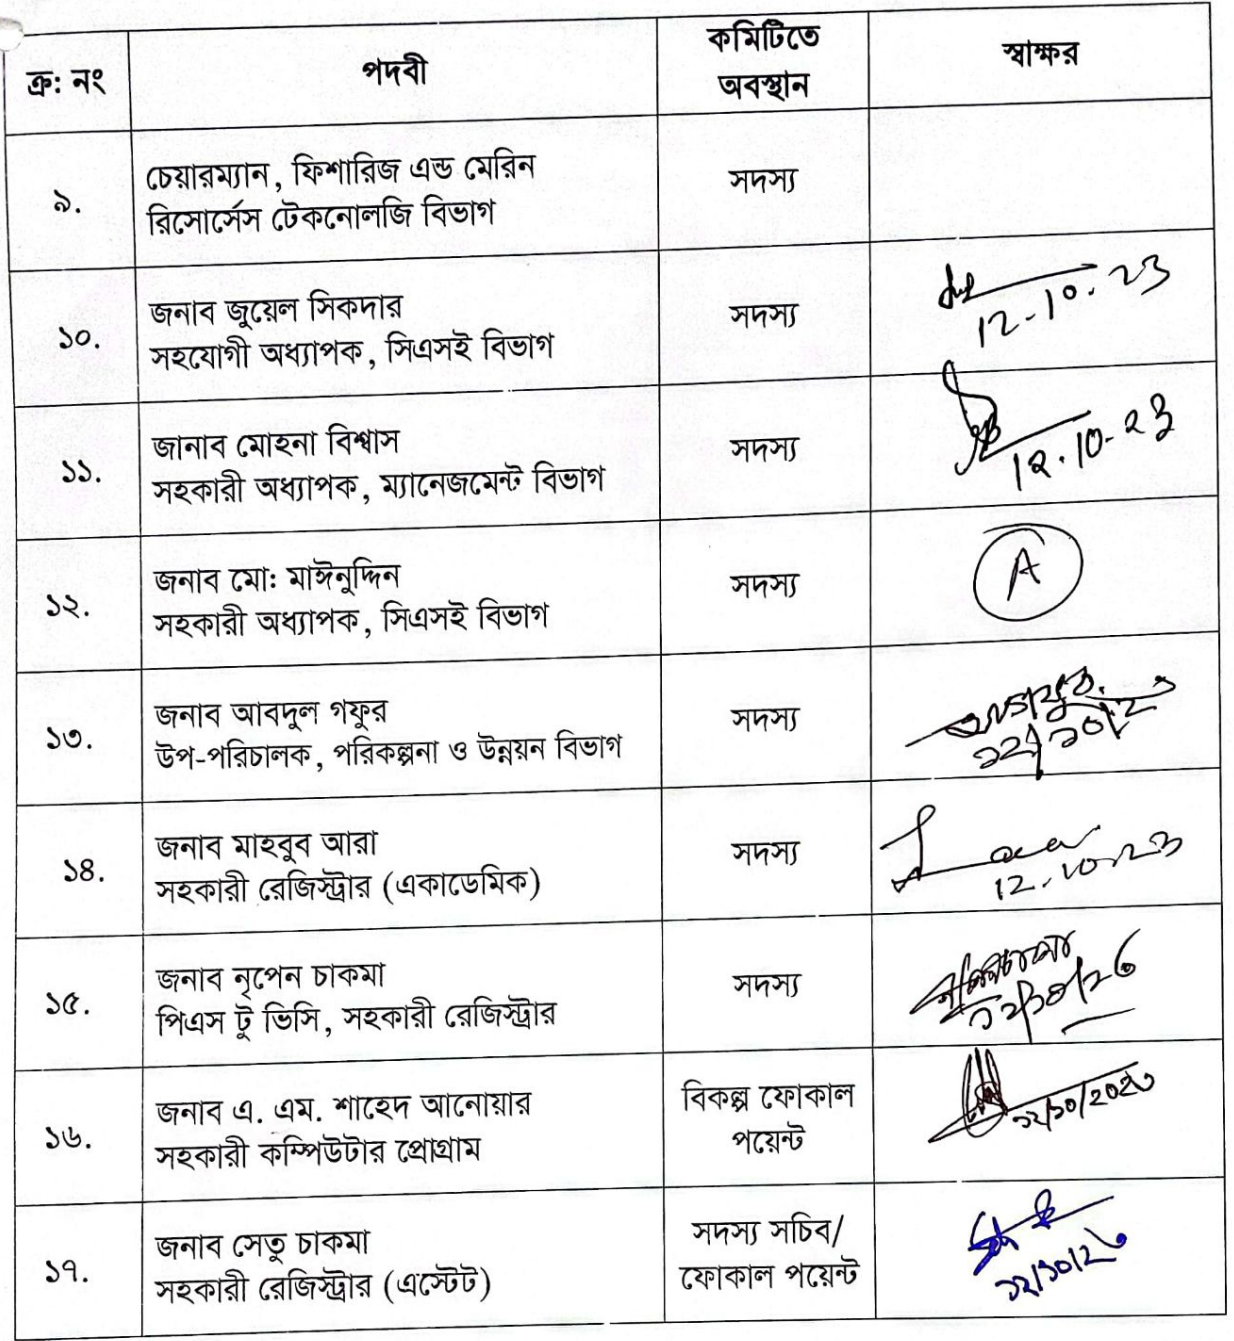 ক্র: নং পদবী কমিটিতে অবস্থান স্বাক্ষর
৯. চেয়ারম্যান, ফিশারিজ এন্ড মেরিন
রিসোর্সেস টেকনোলজি বিভাগ সদস্য
১০. জনাব জুয়েল সিকদার
সহযোগী অধ্যাপক, সিএসই বিভাগ সদস্য
12-10-23
১১. জানাব মোহনা বিশ্বাস
সহকারী অধ্যাপক, ম্যানেজমেন্ট বিভাগ সদস্য
12.10-23
১২. জনাব মো: মাঈনুদ্দিন
সহকারী অধ্যাপক, সিএসই বিভাগ সদস্য
A
১৩. জনাব আবদুল গফুর
উপ-পরিচালক, পরিকল্পনা ও উন্নয়ন বিভাগ সদস্য
১৪. জনাব মাহবুব আরা
সহকারী রেজিস্ট্রার (একাডেমিক) সদস্য
12.10.23
১৫. জনাব নৃপেন চাকমা
পিএস টু ভিসি, সহকারী রেজিস্ট্রার সদস্য
১৬. জনাব এ. এম. শাহেদ আনোয়ার
সহকারী কম্পিউটার প্রোগ্রাম
বিকল্প ফোকাল
পয়েন্ট
১৭. জনাব সেতু চাকমা
সহকারী রেজিস্ট্রার (এস্টেট)
সদস্য সচিব/
ফোকাল পয়েন্ট